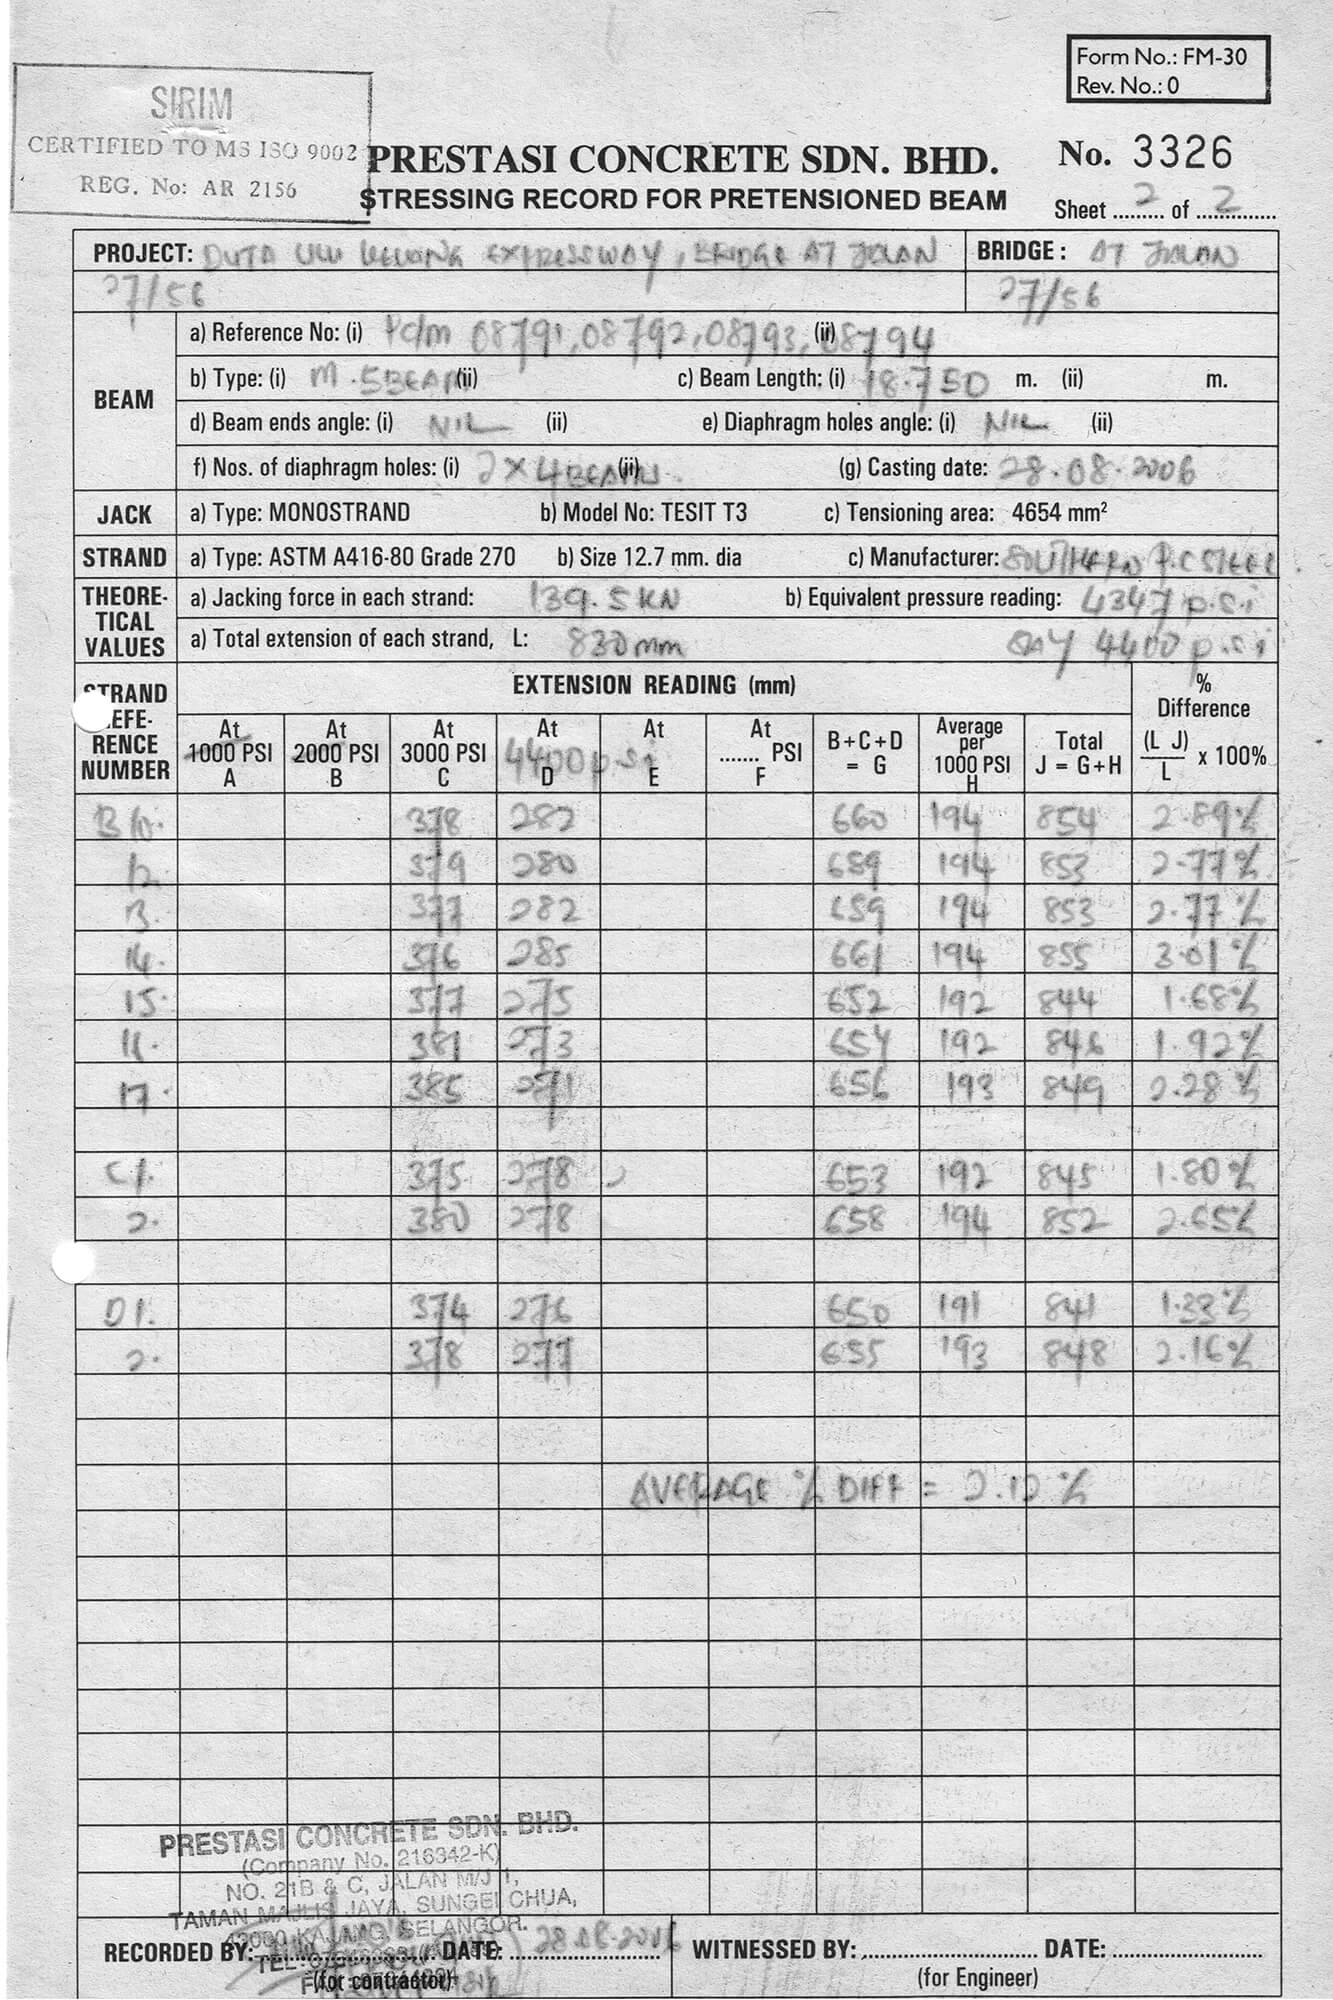 Form No.: FM-30
Rev. No.: 0
SIRIM
CERTIFIED TO MS ISO 9002
REG. No: AR 2156
PRESTASI CONCRETE SDN. BHD.
No. 3326
STRESSING RECORD FOR PRETENSIONED BEAM
Sheet 2 of 2
PROJECT: DUTA ULU KELANG EXPRESSWAY, BRIDGE AT JALAN
27/56
BRIDGE: AT JALAN
27/56
BEAM
a) Reference No: (i) Pc/m 08791, 08792, 08793, (ii) 08794
b) Type: (i) M.5BEAM (ii) c) Beam Length: (i) 18.750 m. (ii) m.
d) Beam ends angle: (i) NIL (ii) e) Diaphragm holes angle: (i) NIL (ii)
f) Nos. of diaphragm holes: (i) 2 x 4 BEAMS. (ii) (g) Casting date: 28.08.2006
JACK a) Type: MONOSTRAND b) Model No: TESIT T3 c) Tensioning area: 4654 mm²
STRAND a) Type: ASTM A416-80 Grade 270 b) Size 12.7 mm. dia c) Manufacturer: SOUTHERN P.C STEEL.
THEORE-
TICAL
VALUES
a) Jacking force in each strand: 139.5KN b) Equivalent pressure reading: 4347 p.s.i
a) Total extension of each strand, L: 830mm SAY 4400 p.s.i
STRAND
REFE-
RENCE
NUMBER
EXTENSION READING (mm)
%
Difference
(L J)
L
x 100%
At 1000 PSI A
At 2000 PSI B
At 3000 PSI C
At 4400 p.si D
At E
At ....... PSI F
B+C+D = G
Average per 1000 PSI H
Total J = G+H
B10. 378 282 660 194 854 2.89%
12. 379 280 659 194 853 2.77%
13. 377 282 659 194 853 2.77%
14. 376 285 661 194 855 3.01%
15. 377 275 652 192 844 1.68%
16. 381 273 654 192 846 1.92%
17. 385 271 656 193 849 2.28%
C1. 375 278 653 192 845 1.80%
2. 380 278 658 194 852 2.65%
D1. 374 276 650 191 841 1.33%
2. 378 277 655 193 848 2.16%
AVERAGE % DIFF = 2.12 %
PRESTASI CONCRETE SDN. BHD.
(Company No. 216342-K)
NO. 21B & C, JALAN M/J 1,
TAMAN MAJLIS JAYA, SUNGEI CHUA,
43000 KAJANG, SELANGOR.
RECORDED BY: DATE: 28.08.2006 WITNESSED BY: DATE:
(for contractor) (for Engineer)